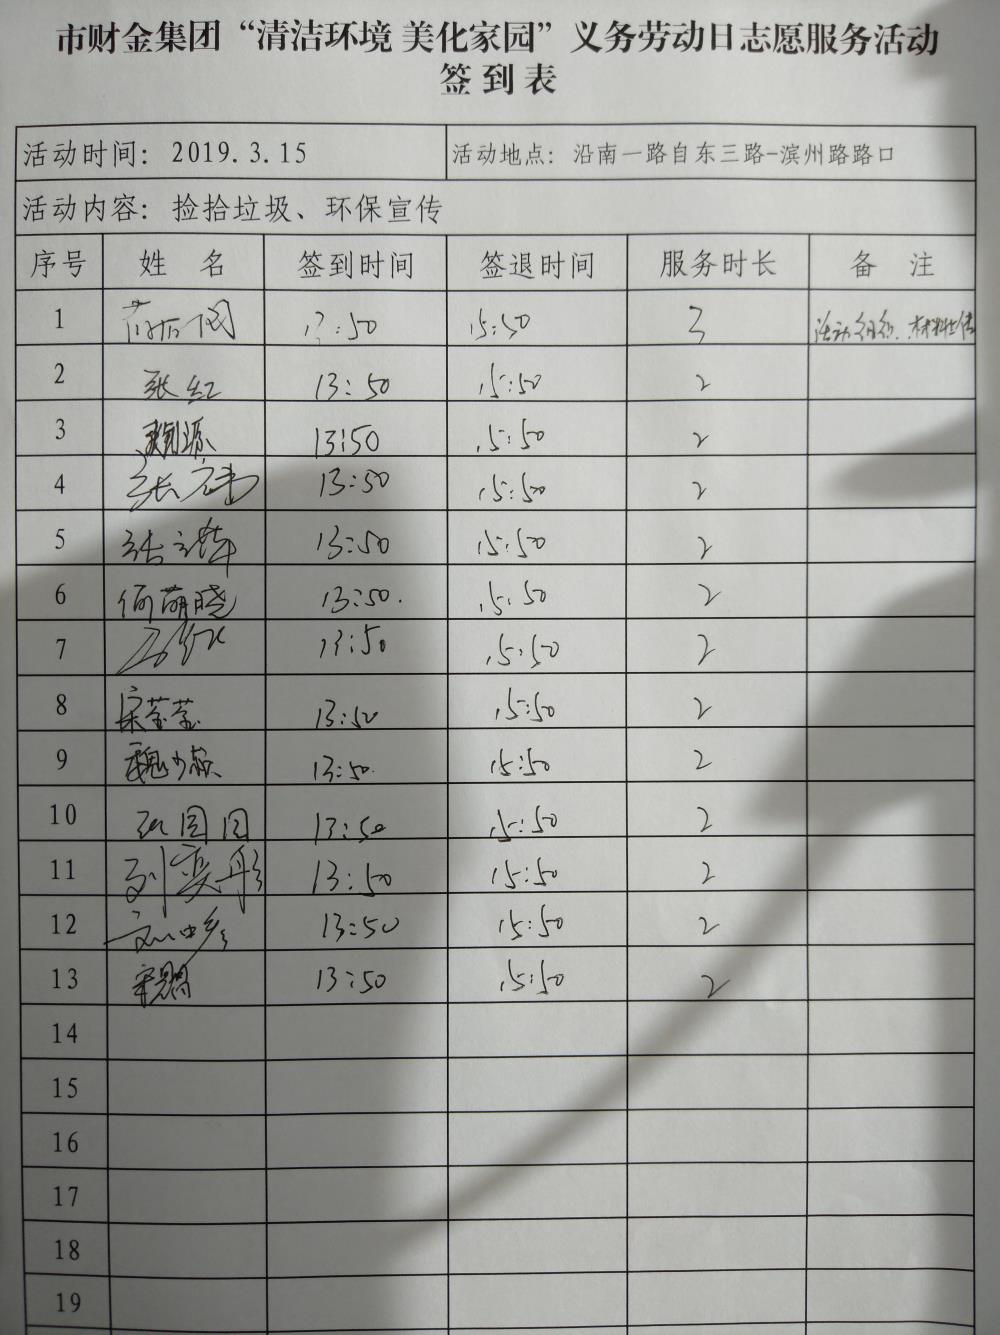 市财金集团“清洁环境 美化家园”义务劳动日志愿服务活动
签到表
活动时间：2019.3.15 活动地点：沿南一路自东三路-滨州路路口
活动内容：捡拾垃圾、环保宣传
序号 姓 名 签到时间 签退时间 服务时长 备 注
1 13:50 15:50 3 活动组织、材料上传
2 张红 13:50 15:50 2
3 13:50 15:50 2
4 13:50 15:50 2
5 13:50 15:50 2
6 何萌晓 13:50. 15:50 2
7 13:50 15:50 2
8 宋莹莹 13:50 15:50 2
9 魏少敏 13:50. 15:50 2
10 13:50 15:50 2
11 刘奕彤 13:50 15:50 2
12 13:50 15:50 2
13 13:50 15:50 2
14
15
16
17
18
19